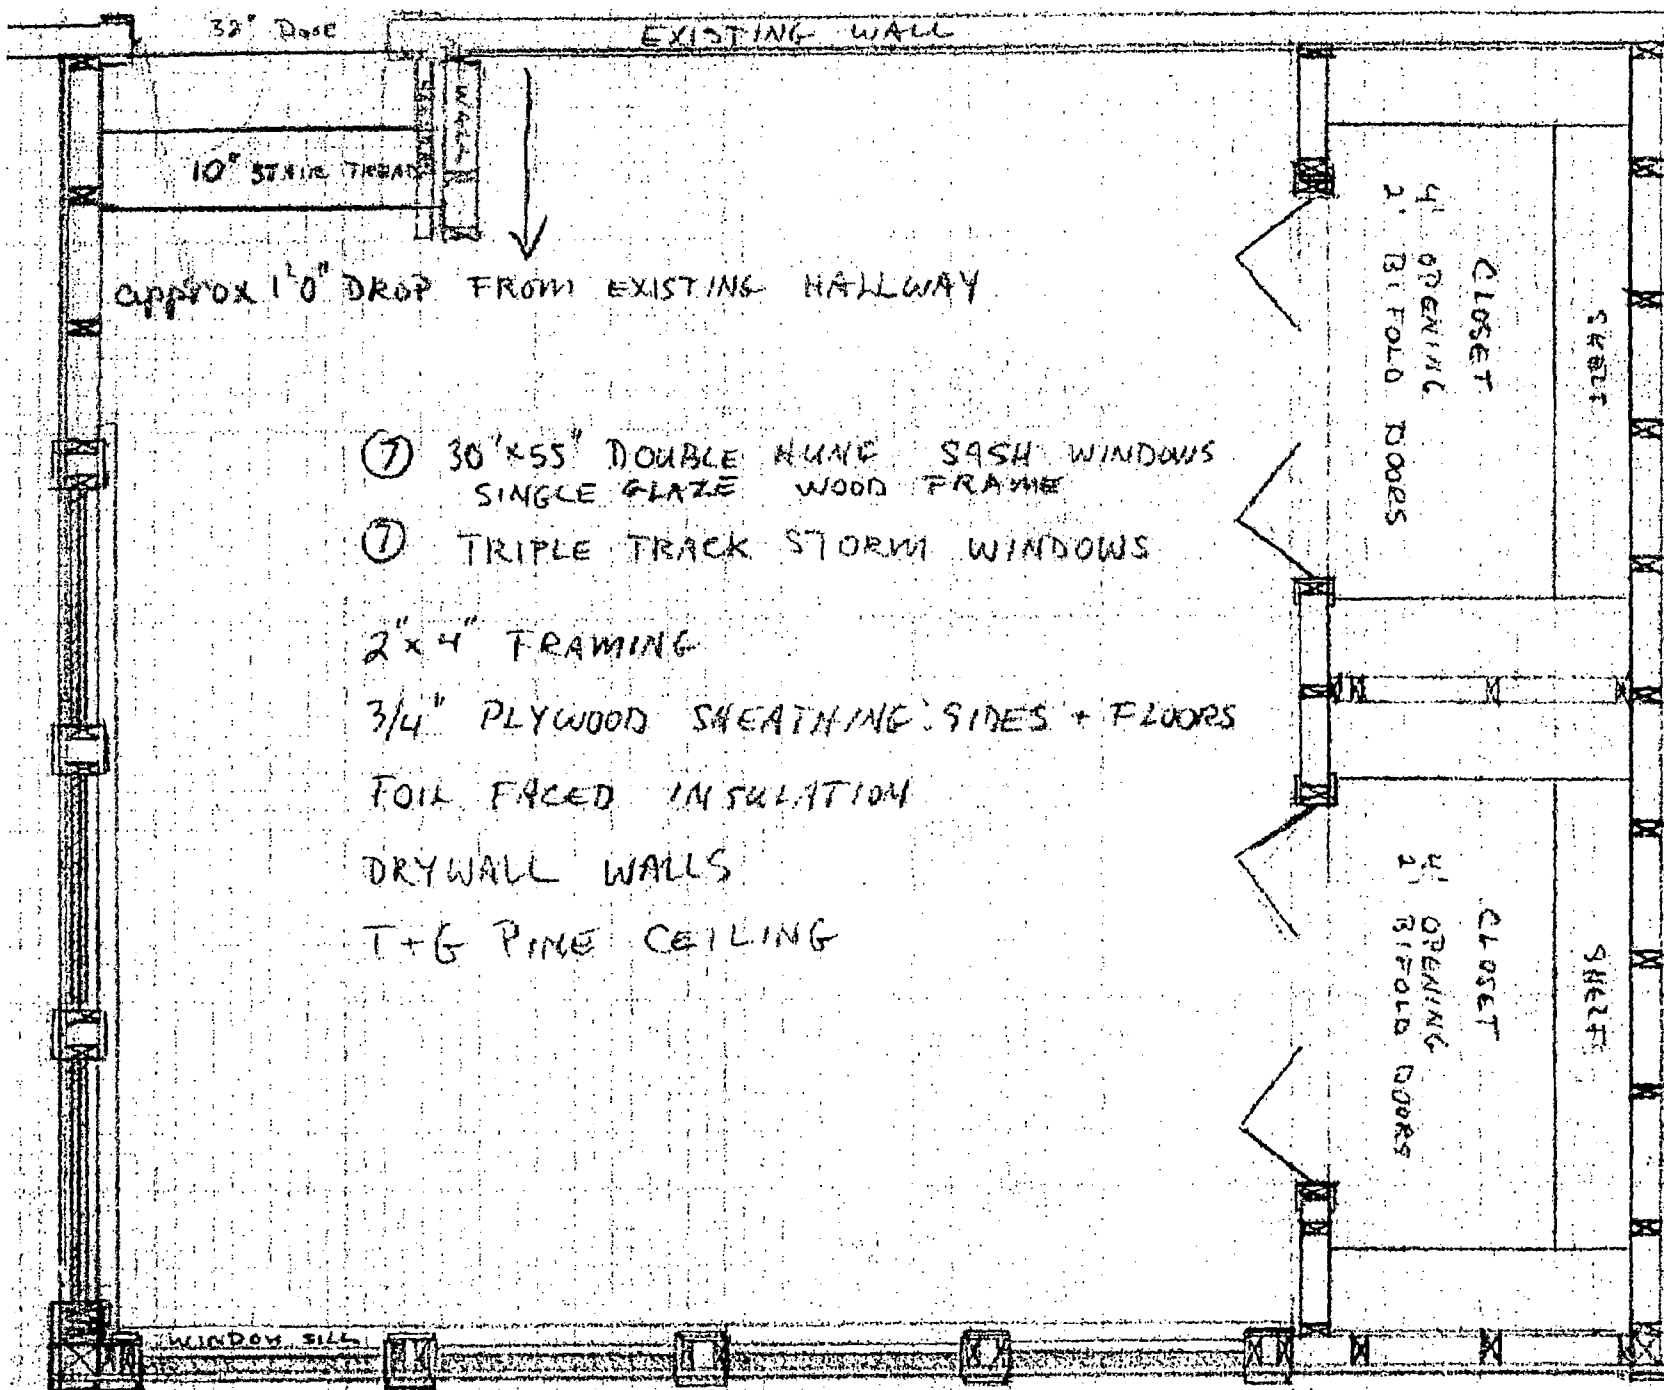 32" DOOR
EXISTING WALL
WALL
10" STAIR TREAD
approx 1'0" DROP FROM EXISTING HALLWAY
⑦ 30"x55" DOUBLE HUNG SASH WINDOWS
SINGLE GLAZE WOOD FRAME
⑦ TRIPLE TRACK STORM WINDOWS
2"x4" FRAMING
3/4" PLYWOOD SHEATHING: SIDES + FLOORS
FOIL FACED INSULATION
DRYWALL WALLS
T+G PINE CEILING
SHELF
CLOSET
4' OPENING
2' BIFOLD DOORS
SHELF
CLOSET
4' OPENING
2' BIFOLD DOORS
WINDOW SILL